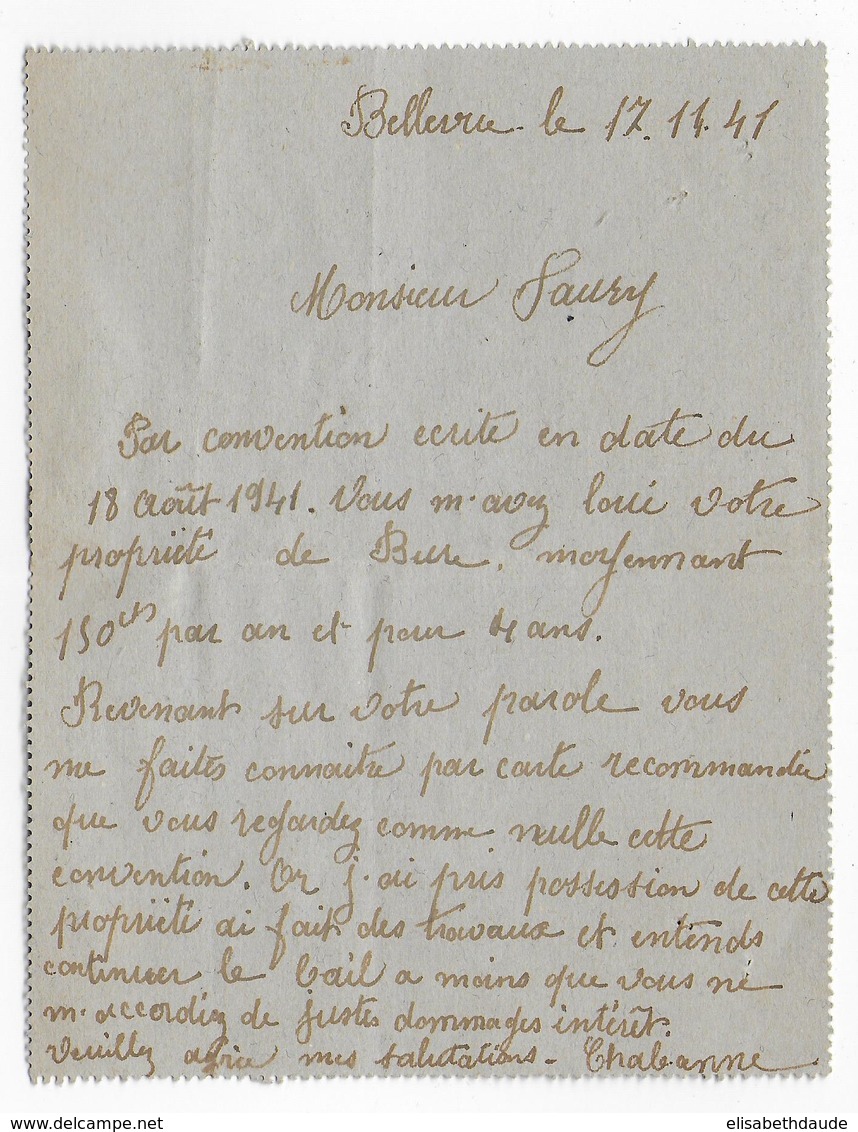 Bellevue le 17.11.41
Monsieur Saury
Par convention ecrite en date du
18 Août 1941. Vous m'avez loué votre
propriété de Bure, moyennant
150 par an et pour 4 ans.
Revenant sur votre parole vous
me faites connaitre par carte recommandée
que vous regardez comme nulle cette
convention. Or j'ai pris possession de cette
propriété ai fait des travaux et entends
continuer le bail a moins que vous ne
m'accordiez de justes dommages intérêt.
Veuillez agréer mes salutations - Chabanne
www.elisabethdaude